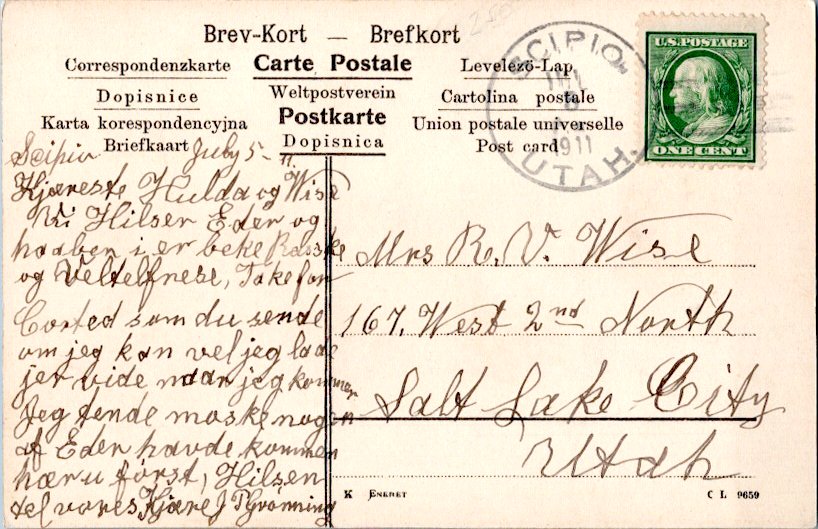 Brev-Kort — Brefkort
Correspondenzkarte Carte Postale Levelezö-Lap
Dopisnice Weltpostverein Cartolina postale
Karta korespondencyjna Postkarte Union postale universelle
Briefkaart Dopisnica Post card
SCIPIO,
1911
UTAH.
U.S. POSTAGE
ONE CENT
Scipio July 5 - 11.
Kjæreste Hulda og Wise
Vi Hilser Eder og
haaber i er beke Raske
og Veltelfnese, Take for
Corted som du sende
om jeg kan vel jeg lade
jer vide naar jeg kommer
Jeg tende maske nogen
af Eder havde kommen
hær u först, Hilsen
tel vores Kjære J P Grönning
Mrs R. V. Wise
167, West 2nd North
Salt Lake City
Utah
K ENERET
C L 9659